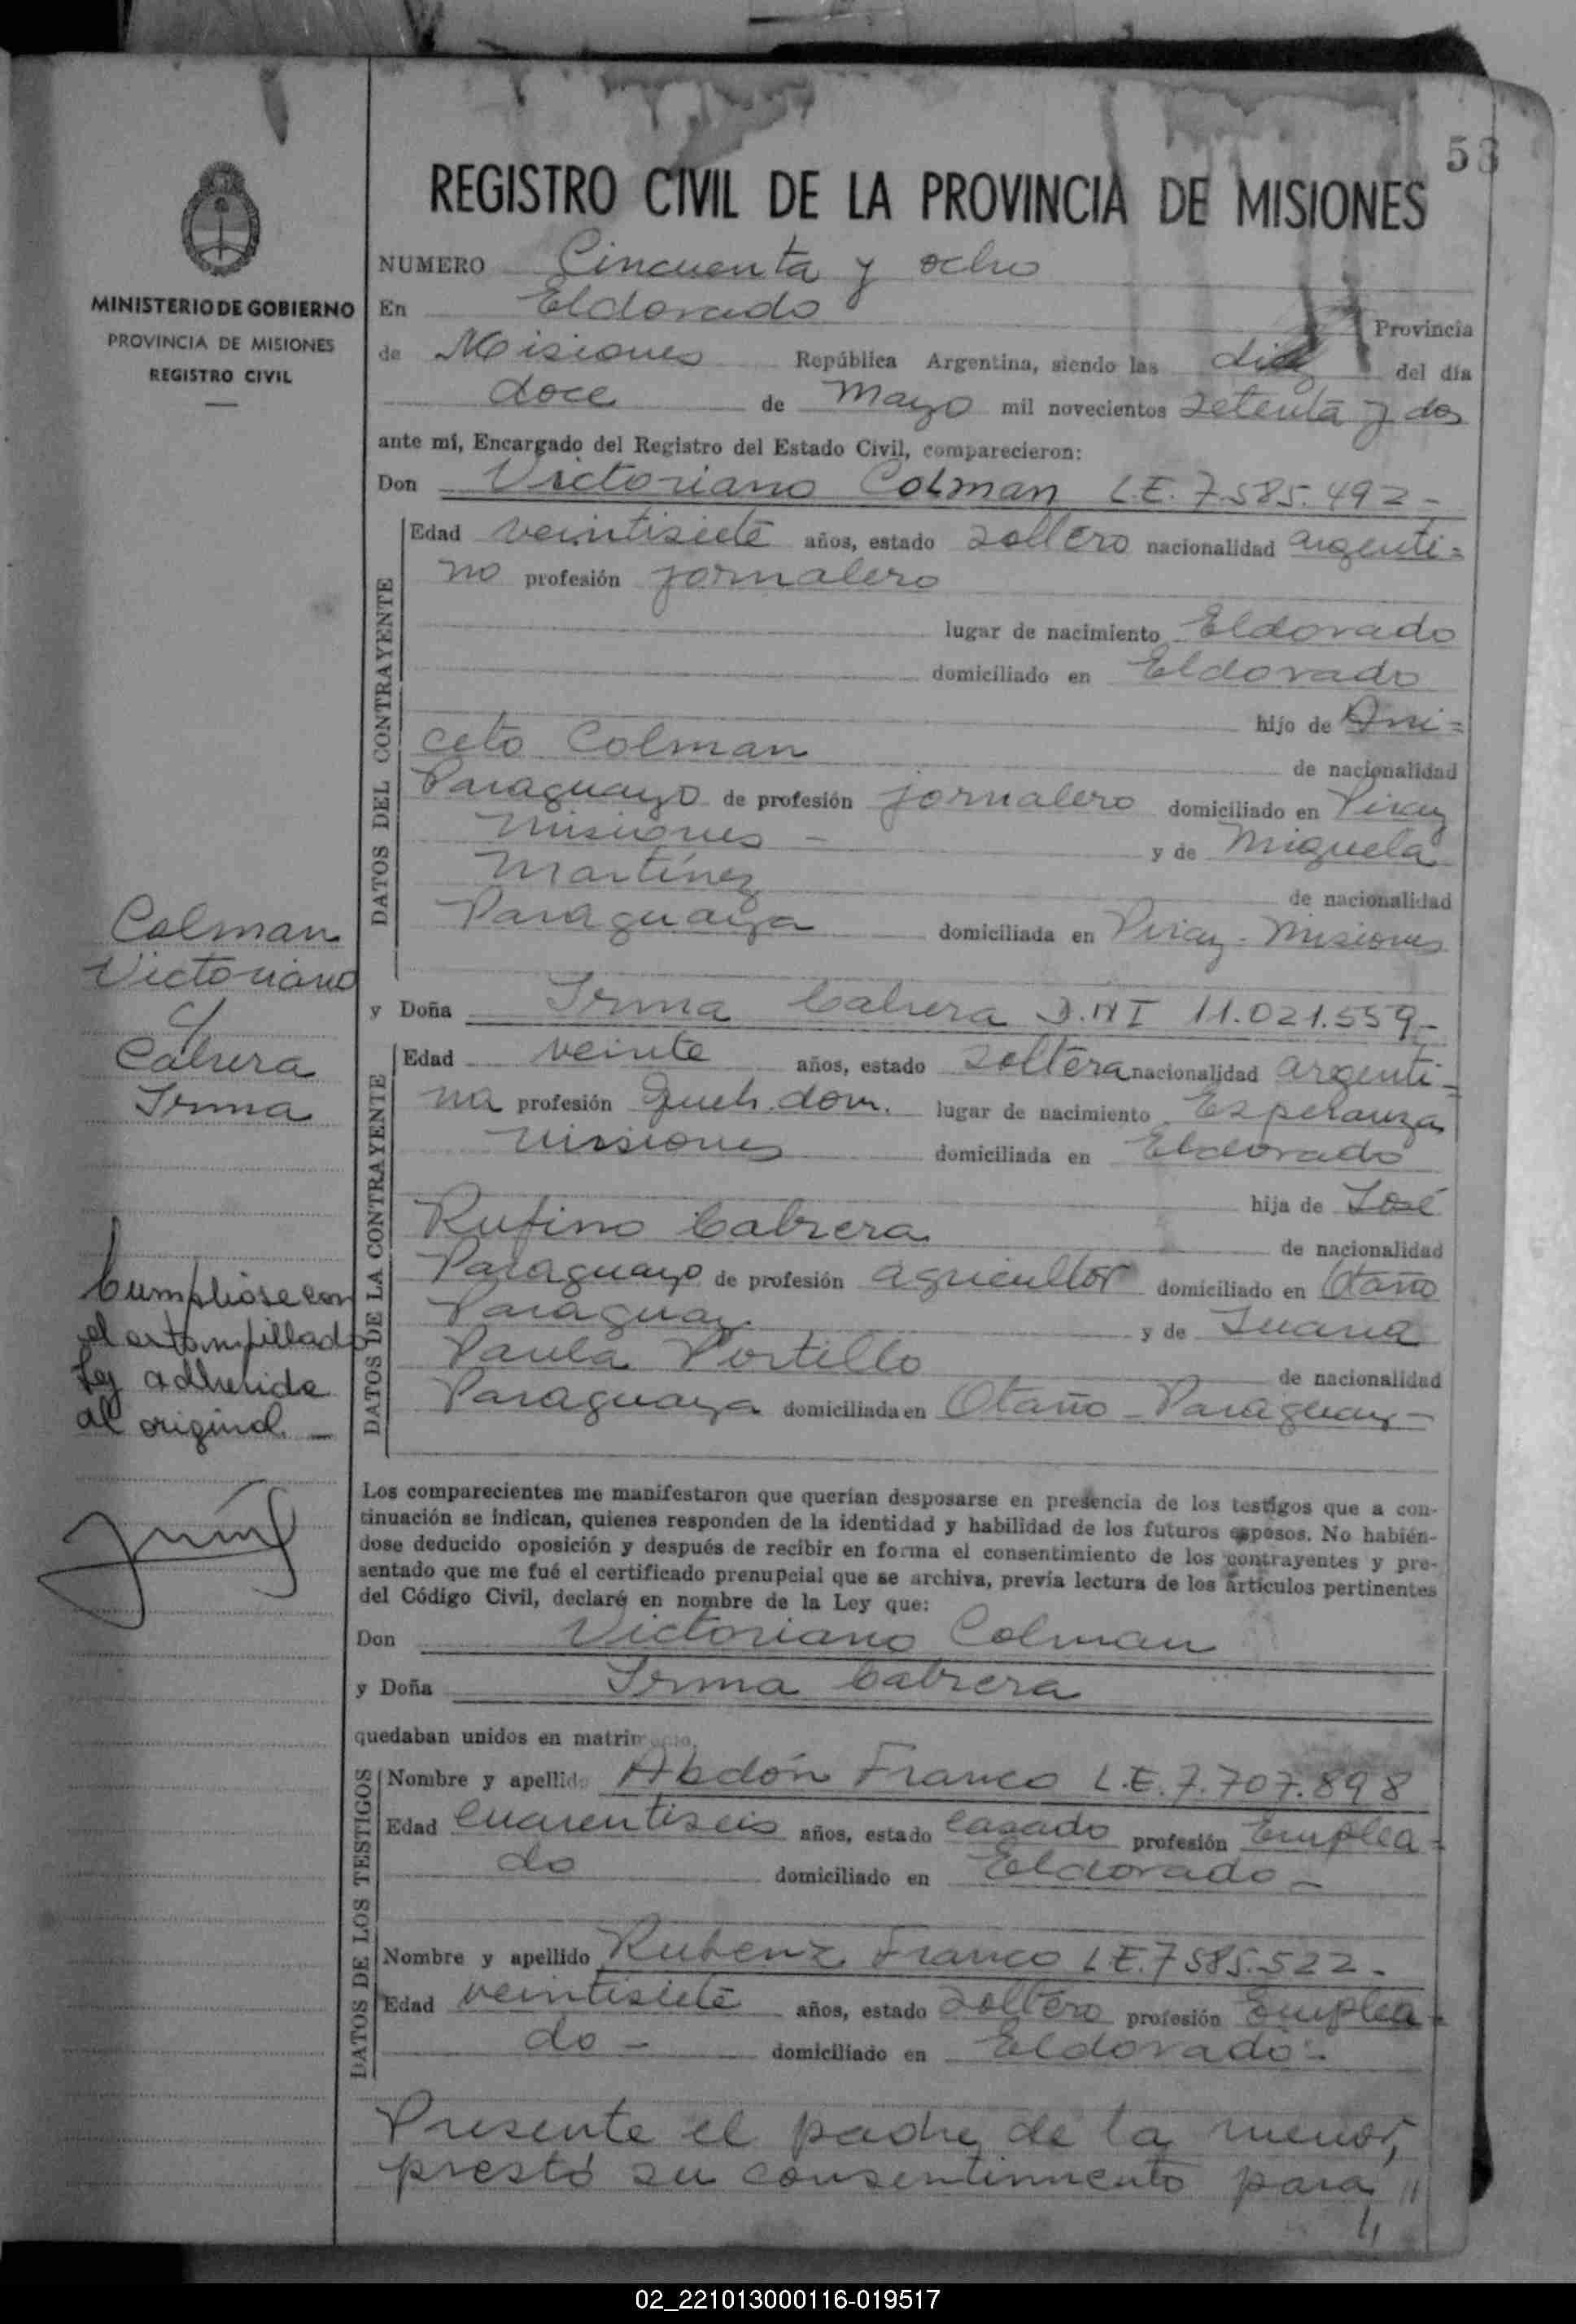 53
REGISTRO CIVIL DE LA PROVINCIA DE MISIONES
MINISTERIO DE GOBIERNO
PROVINCIA DE MISIONES
REGISTRO CIVIL
NUMERO Cincuenta y ocho
En Eldorado Provincia
de Misiones República Argentina, siendo las diez del día
doce de Mayo mil novecientos setenta y dos
ante mí, Encargado del Registro del Estado Civil, comparecieron:
Don Victoriano Colman L.E. 7.585.492-
DATOS DEL CONTRAYENTE
Edad veintisiete años, estado soltero nacionalidad argenti=
no profesión jornalero
lugar de nacimiento Eldorado
domiciliado en Eldorado
hijo de Ani=
ceto Colman de nacionalidad
Paraguayo de profesión jornalero domiciliado en Piray
Misiones - y de Miguela
Martínez de nacionalidad
Paraguaya domiciliada en Piray - Misiones
Colman
Victoriano
c/
Cabrera
Irma
y Doña Irma Cabrera D.N I 11.021.559.-
DATOS DE LA CONTRAYENTE
Edad veinte años, estado soltera nacionalidad argenti=
na profesión Queh. dom. lugar de nacimiento Esperanza
Misiones domiciliada en Eldorado
hija de José
Rufino Cabrera de nacionalidad
Paraguayo de profesión agricultor domiciliado en Otaño
Paraguay y de Juana
Paula Portillo de nacionalidad
Paraguaya domiciliada en Otaño - Paraguay -
Cumpliose con
el estampillado
Ley adherida
al original. -
Los comparecientes me manifestaron que querían desposarse en presencia de los testigos que a con-
tinuación se indican, quienes responden de la identidad y habilidad de los futuros esposos. No habién-
dose deducido oposición y después de recibir en forma el consentimiento de los contrayentes y pre-
sentado que me fué el certificado prenupcial que se archiva, previa lectura de los artículos pertinentes
del Código Civil, declaré en nombre de la Ley que:
Don Victoriano Colman
y Doña Irma Cabrera
quedaban unidos en matrimonio.
DATOS DE LOS TESTIGOS
Nombre y apellido Abdón Franco L.E. 7.707.898
Edad cuarentiseis años, estado casado profesión Emplea=
do domiciliado en Eldorado -
Nombre y apellido Rubenz Franco L.E. 7 585.522 -
Edad veintisiete años, estado soltero profesión Emplea=
do - domiciliado en Eldorado -
Presente el padre de la menor,
prestó su consentimiento para //
//
02_221013000116-019517